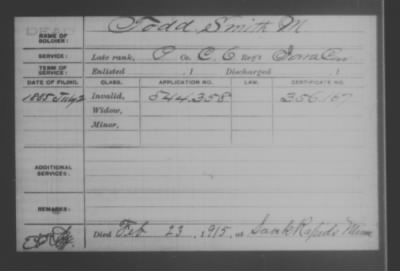 DEAD
NAME OF SOLDIER: Todd, Smith M
SERVICE: Late rank, P Co. C, 6 Reg't Iowa Cav
TERM OF SERVICE: Enlisted , 1 Discharged , 1
DATE OF FILING. CLASS. APPLICATION NO. LAW. CERTIFICATE NO.
1885 July Invalid, 544.358 356.167
Widow,
Minor,
ADDITIONAL SERVICES:
REMARKS:
Died Feb 23, 1915, at Sauk Rapids Minn